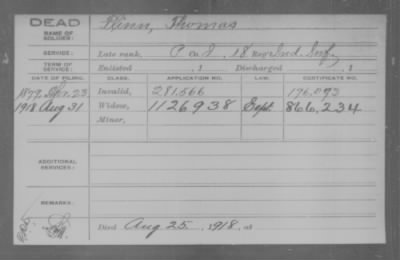 DEAD
NAME OF SOLDIER: Flinn, Thomas
SERVICE: Late rank, Co I, 18 Reg't Ind. Inf.
TERM OF SERVICE: Enlisted , 1 Discharged , 1
DATE OF FILING. CLASS. APPLICATION NO. LAW. CERTIFICATE NO.
1879, Apr. 23 Invalid, 281,566 176,093
1918 Aug 31 Widow, 1126938 Sept. 866,234
Minor,
ADDITIONAL SERVICES:
REMARKS:
Died Aug 25, 1918, at